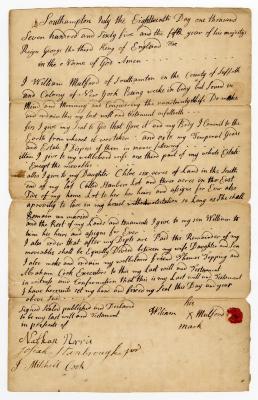 Southampton July the Eighteenth Day one thousand
Seven hundred and Sixty five and the fifth year of his majestys
Reign George the third King of England &c
in the Name of God Amen
I William Mulford of Southamton in the County of Suffolk
and Colony of New York Being weake in body but Sound in
Mind and Memory and Considering the
and ordain this my last will and testament as
first I give my Soul to God that gave it and my Body I Commit to the
Earth from whence it was taken and as to my Temporal Goods
and Estate I Dispose of them in maner following
Item I give to my wellbeloved wife one third part of my whole Estate
Except the
also I give to my Daughter Chloe six acres of Land in the South
end of my lot Called and three acres in the first
five of my home Lot to her her heirs and asigns for Ever also
a to live in my house as Long as She shall
Remain un maried
and the Rest of my Lands and tenaments I give to my son William to
him his heirs and asigns for Ever
I also order that after my Depts are Paid the Remainder of my
moveables shall be Equally Divided between my wife Daughter and Son
I also make and ordain my wellbeloved friend Thomas Topping and
Abraham Cook Executors to this my last will and Testament
in witness and Confirmation that this is my Last will and Testament
I have hereunto set my hand and fixed my Seal this Day and year
above said
Signed Sealed published and Declared
to be my last will and Testament
in presents of
his
William X Mulford
mark
Nathan
Josiah Stanbrough
J Mitchell Cook